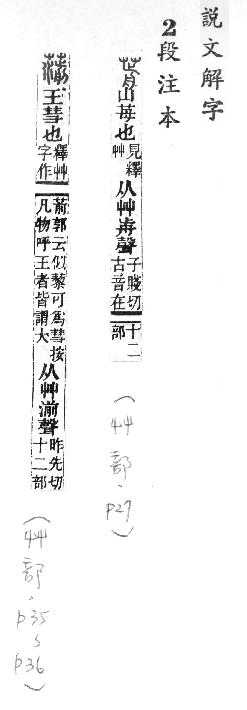 說文解字
2段注本
山苺也見釋艸从艸歬聲子賤切古音在十二部
(艸部、P27)
王彗也釋艸字作葥郭云似藜可為彗按凡物呼王者皆謂大从艸湔聲昨先切十二部
(艸部、P35~P36)